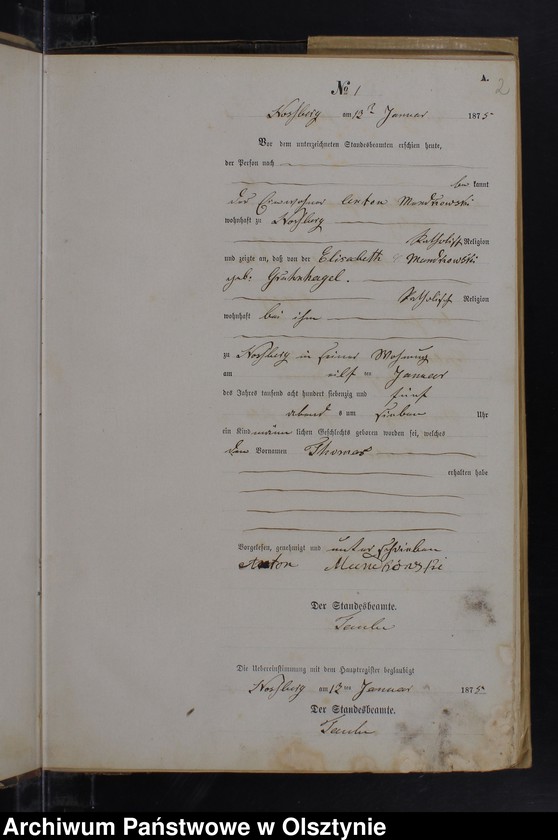 A.
2
No 1
am 12 Januar 1875
Vor dem unterzeichneten Standesbeamten erschien heute,
der Person nach
bekannt
der Einwohner Anton
wohnhaft zu
Katholisch Religion
und zeigte an, daß von der Elisabeth
geb:
Katholisch Religion
wohnhaft bei ihm
zu in seiner Wohnung
am eilf ten Januar
des Jahres tausend acht hundert siebenzig und fünf
abend s um sieben Uhr
ein Kind männlichen Geschlechts geboren worden sei, welches
den Vornamen Thomas
erhalten habe
Vorgelesen, genehmigt und unterschrieben
Anton
Der Standesbeamte.
Die Uebereinstimmung mit dem Hauptregister beglaubigt
am 12ten Januar 1875
Der Standesbeamte.
Archiwum Państwowe w Olsztynie